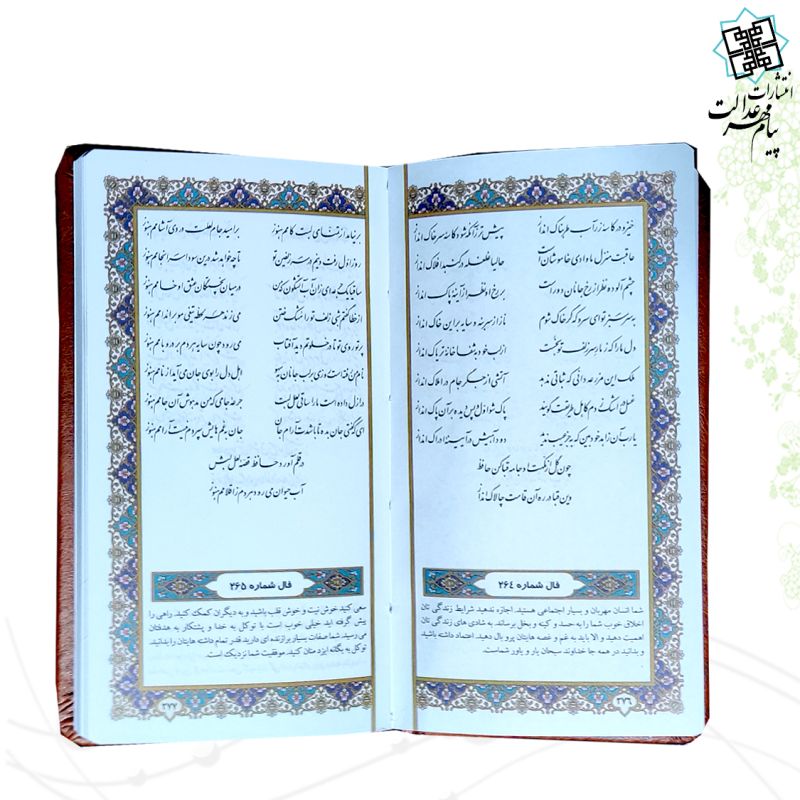 انتشارات
پیام مهر عدالت
خیز و در کاسه زر آب طربناک انداز
پیش‌تر ز آنکه شود کاسه سر خاک انداز
عاقبت منزل ما وادی خاموشان است
حالیا غلغله در گنبد افلاک انداز
چشم آلوده نظر از رخ جانان دور است
بر رخ او نظر از آینه پاک انداز
به سر سبز تو ای سرو که گر خاک شوم
ناز از سر بنه و سایه بر این خاک انداز
دل ما را که ز مار سر زلف تو بخست
از لب خود به شفاخانه تریاک انداز
ملک این مزرعه دانی که ثباتی ندهد
آتشی از جگر جام در املاک انداز
غسل در اشک زدم کاهل طریقت گویند
پاک شو اول و پس دیده بر آن پاک انداز
یا رب آن زاهد خودبین که بجز عیب ندید
دود آهیش در آیینه ادراک انداز
چون گل از نکهت او جامه قبا کن حافظ
وین قبا در ره آن قامت چالاک انداز
فال شماره ۲۶۴
شما انسان مهربان و بسیار اجتماعی هستید. اجازه ندهید شرایط زندگی تان
اخلاق خوب شما را به حسد و کینه و بخل برساند. به شادی های زندگی تان
اهمیت دهید و الا باید به غم و غصه هایتان پرو بال دهید. اعتماد داشته باشید
و بدانید در همه جا خداوند سبحان یار و یاور شماست.
۲۷۶
بر نیامد از تمنای لبت کامم هنوز
بر امید جام لعلت دردی آشامم هنوز
روز اول رفت دینم در سر زلفین تو
تا چه خواهد شد در این سودا سرانجامم هنوز
ساقیا یک جرعه‌ای زان آب آتشگون که من
در میان پختگان عشق او خامم هنوز
از خطا گفتم شبی زلف تو را مشک ختن
می‌زند هر لحظه تیغی مو بر اندامم هنوز
پرتو روی تو تا در خلوتم دید آفتاب
می‌رود چون سایه هر دم بر در و بامم هنوز
نام من رفته است روزی بر لب جانان به سهو
اهل دل را بوی جان می‌آید از نامم هنوز
در ازل داده است ما را ساقی لعل لبت
جرعه جامی که من مدهوش آن جامم هنوز
ای که گفتی جان بده تا باشدت آرام جان
جان به غم‌هایش سپردم نیست آرامم هنوز
در قلم آورد حافظ قصه لعل لبش
آب حیوان می‌رود هر دم ز اقلامم هنوز
فال شماره ۲۶۵
سعی کنید خوش نیت و خوش قلب باشید و به دیگران کمک کنید. راهی را
پیش گرفته اید خیلی خوب است با توکل به خدا و پشتکار به هدفتان
می رسید. شما صفات بسیار برازنده ای دارید قدر تمام داشته هایتان را بدانید.
توکل به یگانه ایزد منان کنید. موفقیت شما نزدیک است.
۲۷۷